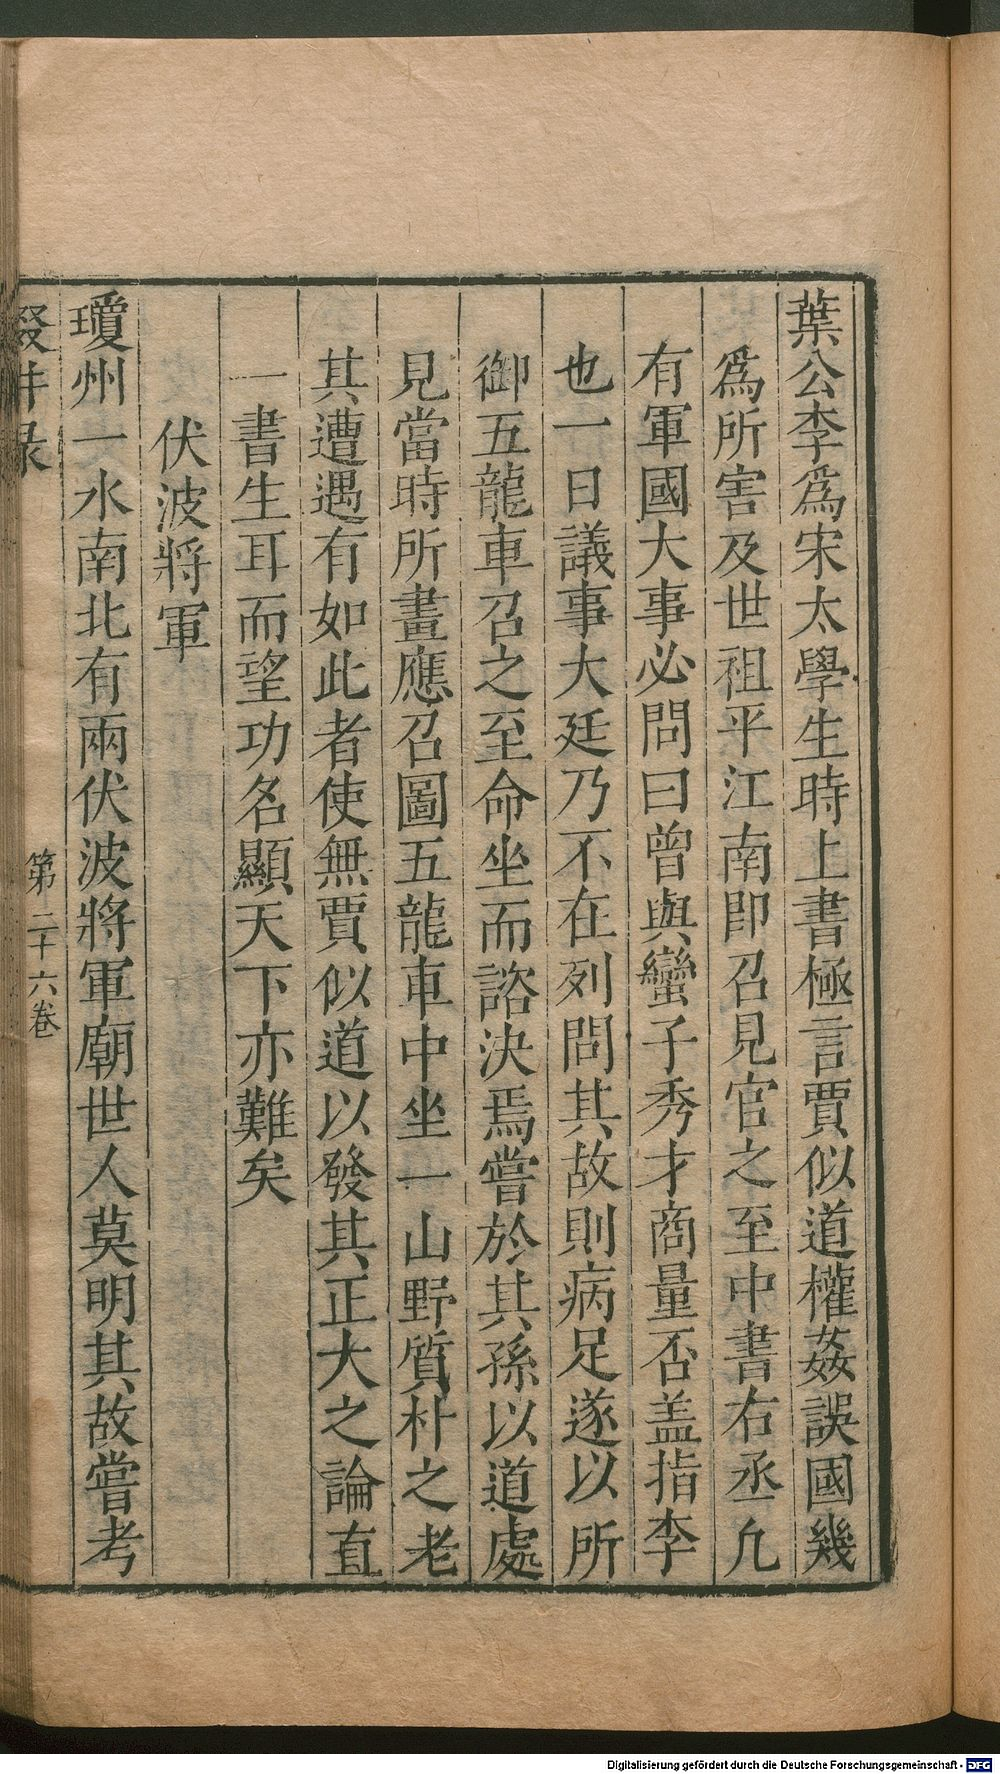 葉公李爲宋太學生時上書極言賈似道權姦誤國幾
爲所害及世祖平江南即召見官之至中書右丞凢
有軍國大事必問曰曾與蠻子秀才商量否盖指李
也一日議事大廷乃不在列問其故則病足遂以所
御五龍車召之至命坐而諮決焉嘗於其孫以道處
見當時所畫應召圖五龍車中坐一山野質朴之老
其遭遇有如此者使無賈似道以發其正大之論直
一書生耳而望功名顯天下亦難矣
伏波將軍
瓊州一水南北有兩伏波將軍廟世人莫明其故嘗考
輟畊录
第二十六卷
Digitalisierung gefördert durch die Deutsche Forschungsgemeinschaft - DFG